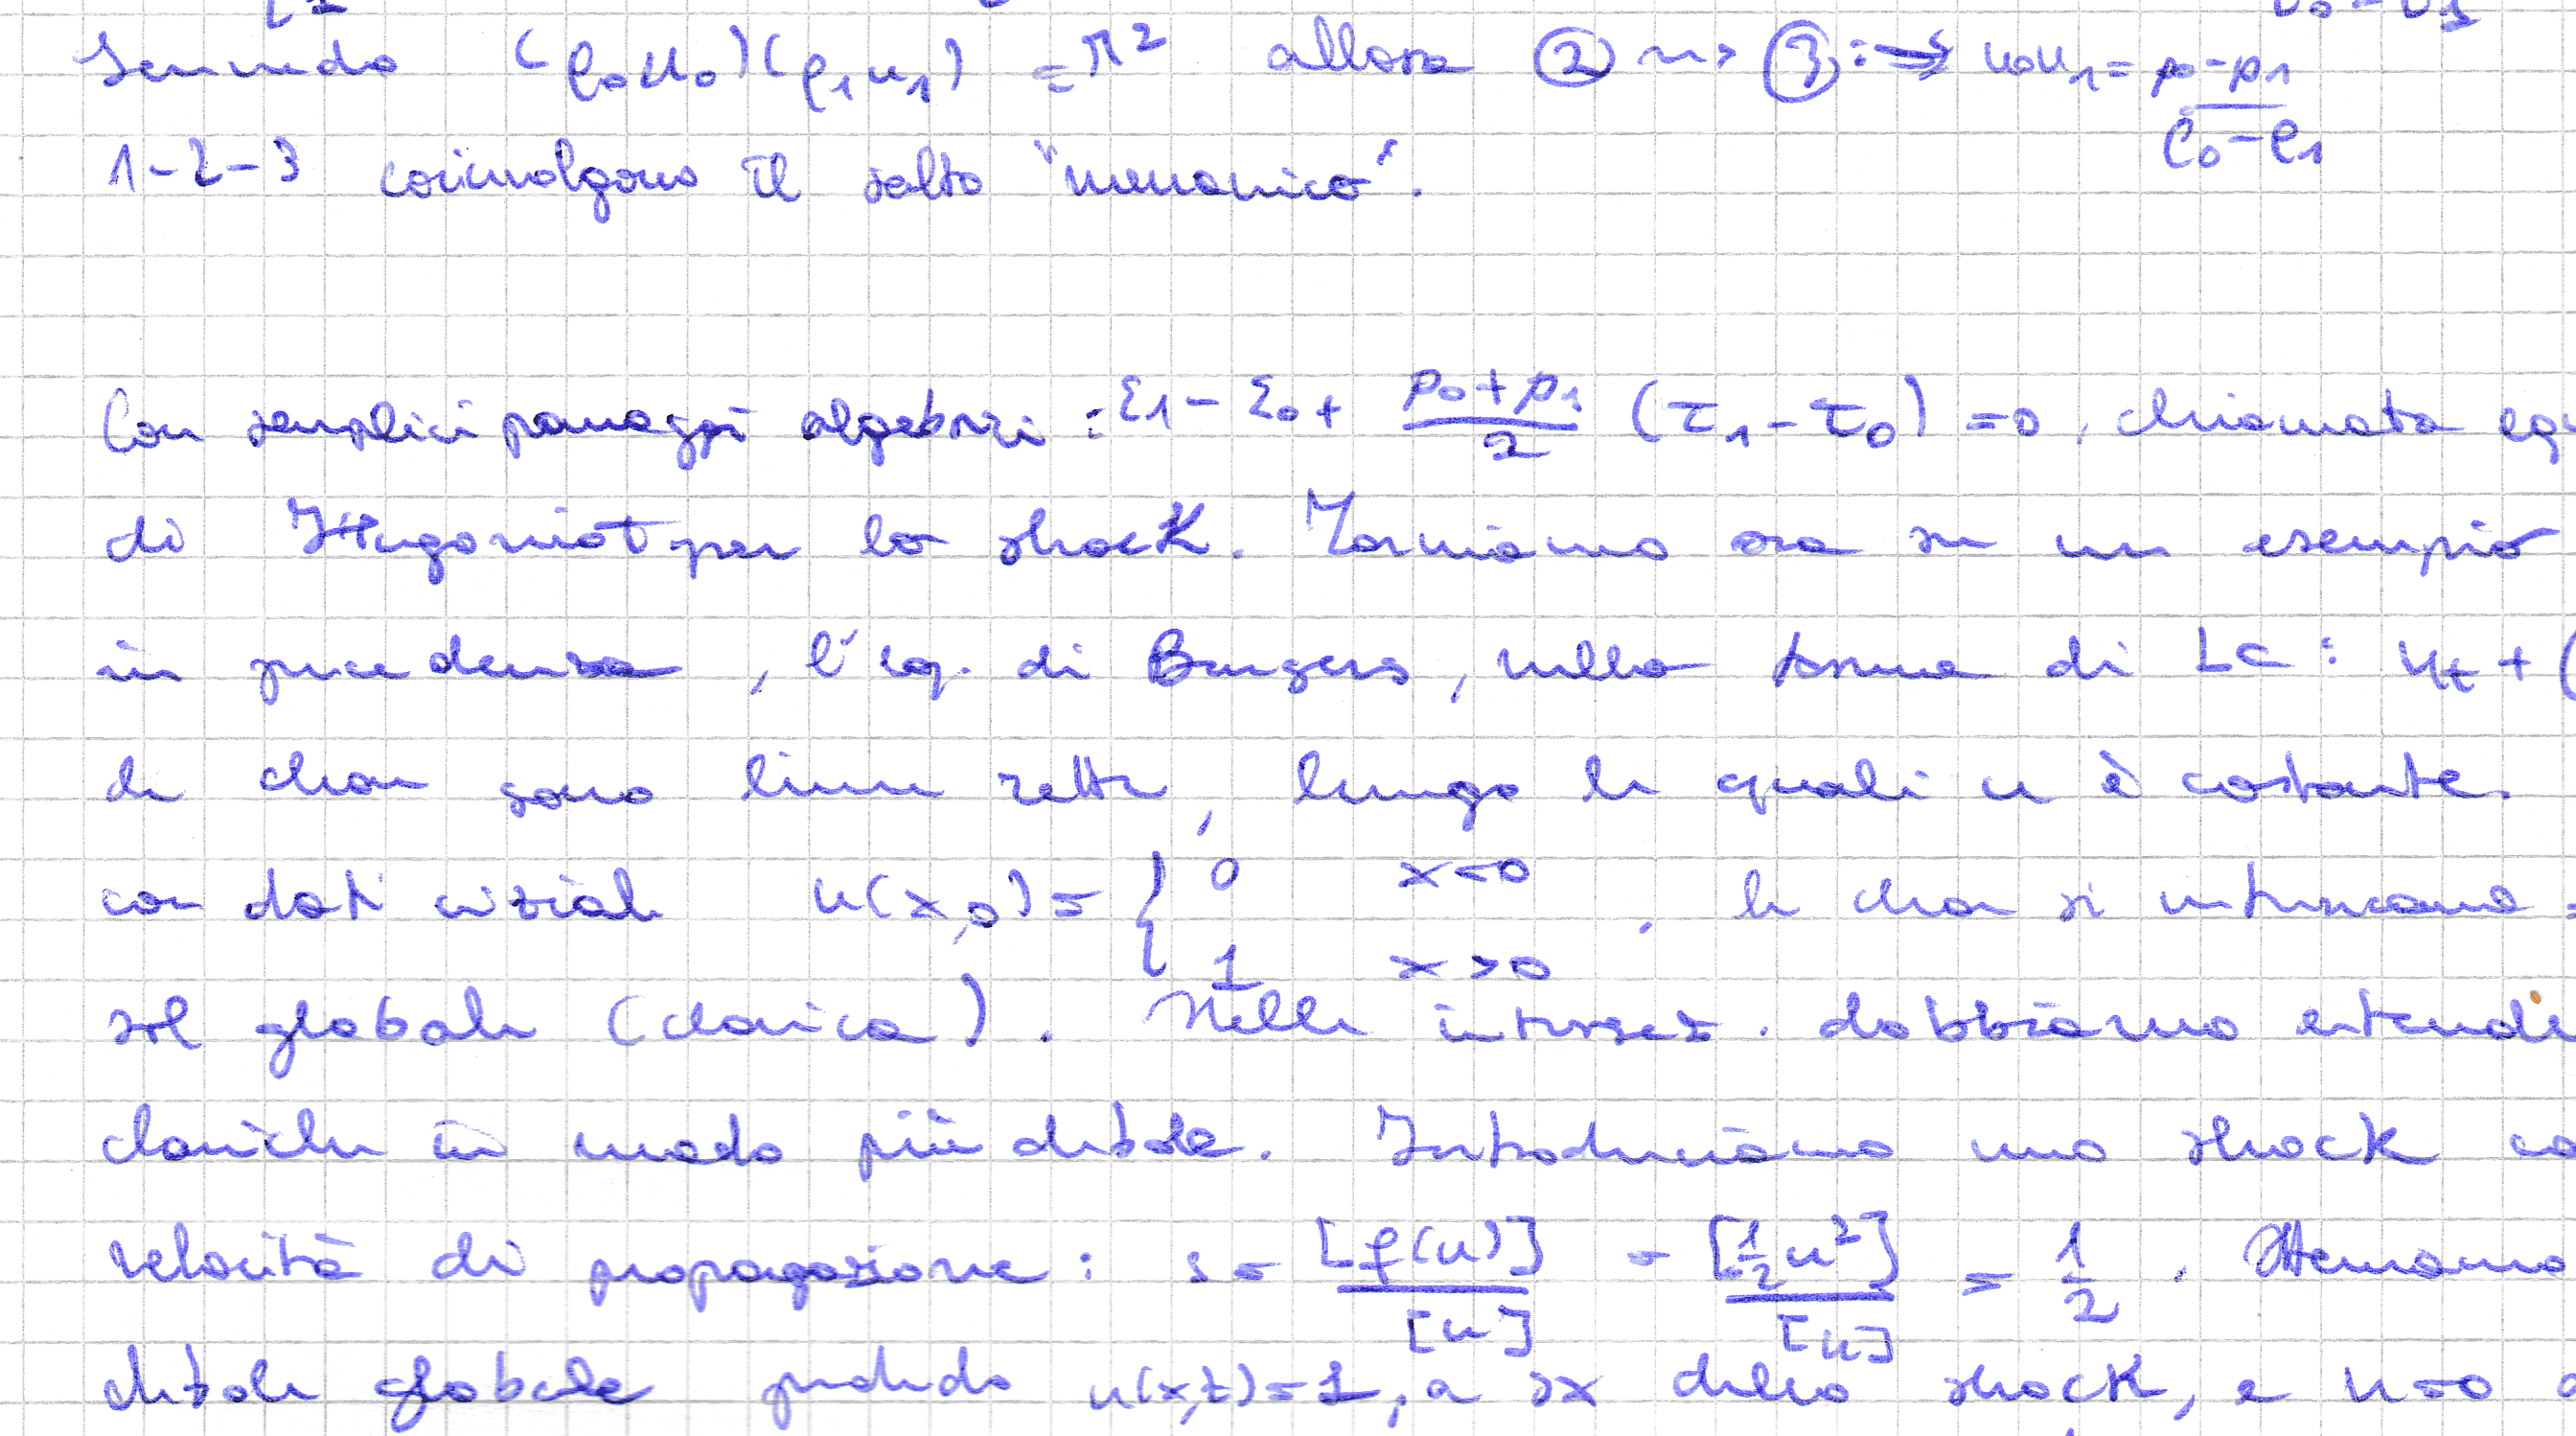 Scrivendo (ρ₀u₀)(ρ₁u₁) = M² allora ② ~> ③ : ⇒ u₀u₁ = p₀-p₁ / ρ₀-ρ₁
1-2-3 coinvolgono il salto "meccanico".
Con semplici passaggi algebrici : ε₁ - ε₀ + p₀+p₁ / 2 (τ₁-τ₀) = 0, chiamata equ
di Hugoniot per lo shock. Torniamo ora su un esempio
in precedenza, l'eq. di Burgers, nella forma di LC : u_t + (
le char sono linee rette, lungo le quali u è costante.
con dati iniziali u(x,0) = { 0 x<0
1 x>0 , le char si intersecano
sol globale (classica). Nelle intersez. dobbiamo estende
classiche in modo più debole. Introduciamo uno shock co
velocità di propagazione : s = [f(u)] / [u] = [1/2 u²] / [u] = 1/2 . Otteniamo
debole globale u(x,t)=1, a sx dello shock, e u=0